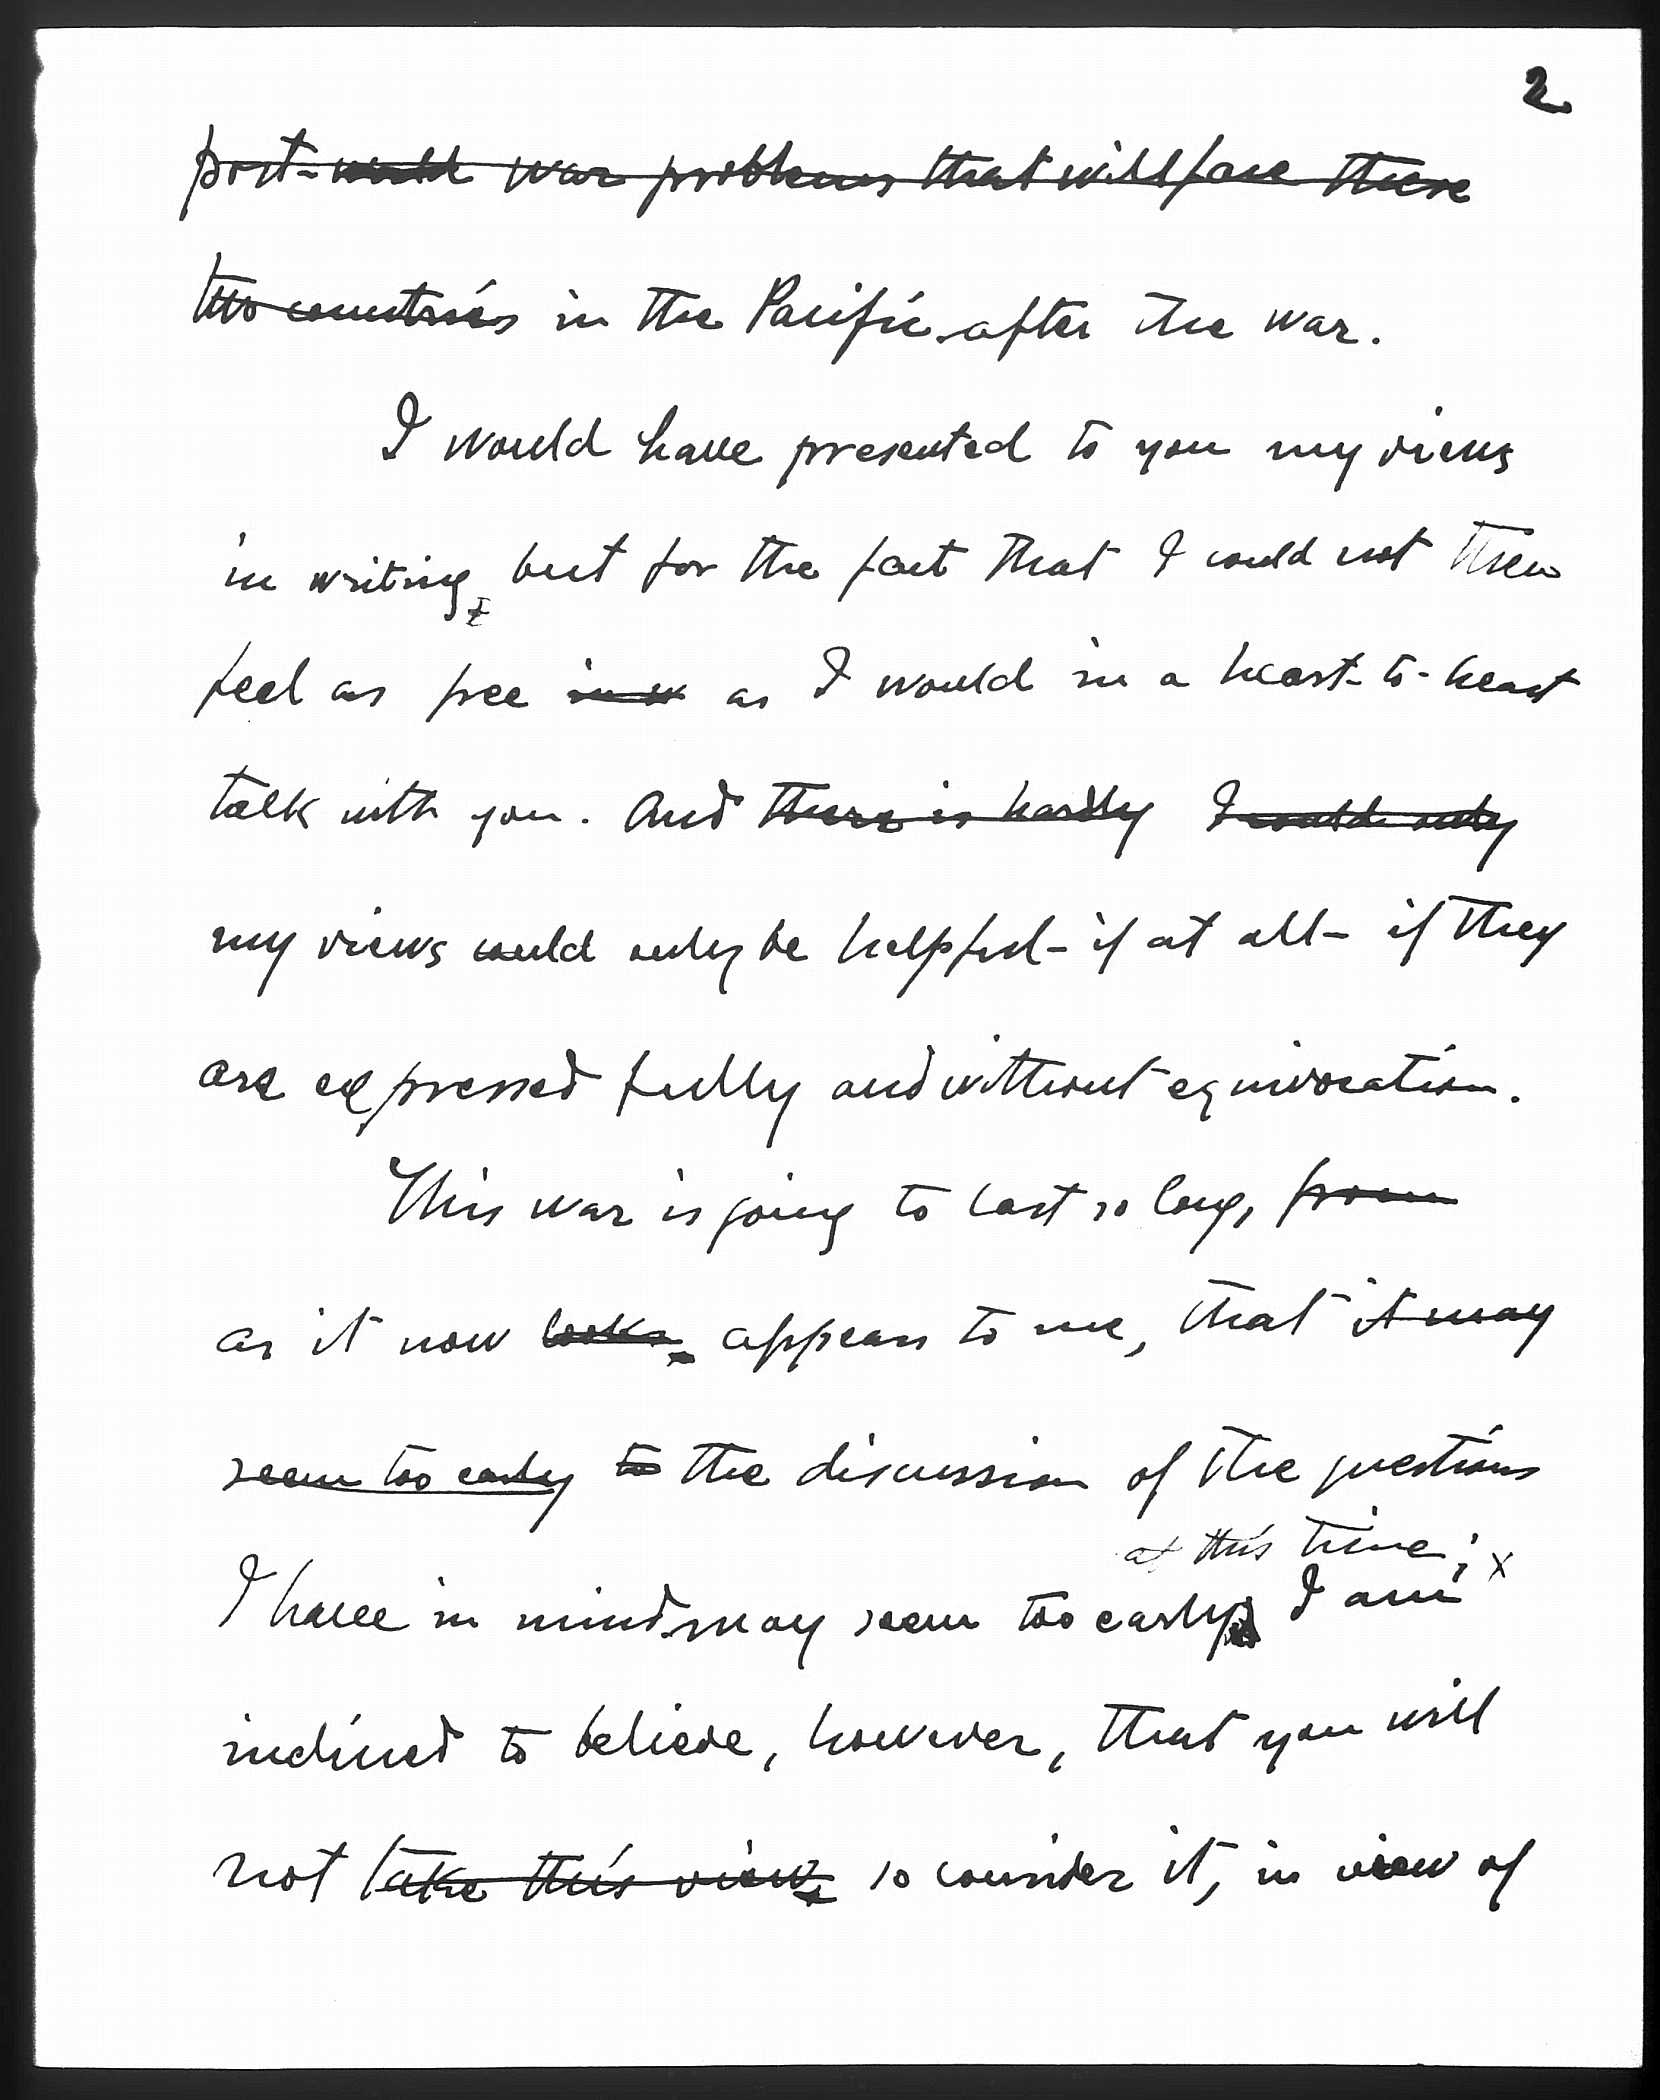 2
post-world war problems that will face these
two countries in the Pacific after the war.
I would have presented to you my views
in writing, but for the fact that I could not then
feel as free in w as I would in a heart-to-heart
talk with you. And there is hardly I could only
my views could only be helpful - if at all - if they
are expressed fully and without equivocation.
This war is going to last so long, from
as it now looks, appears to me, that it may
seem too early to the discussion of the questions
at this time; x
I have in mind may seem too early. I am
inclined to believe, however, that you will
not take this view. so consider it, in view of